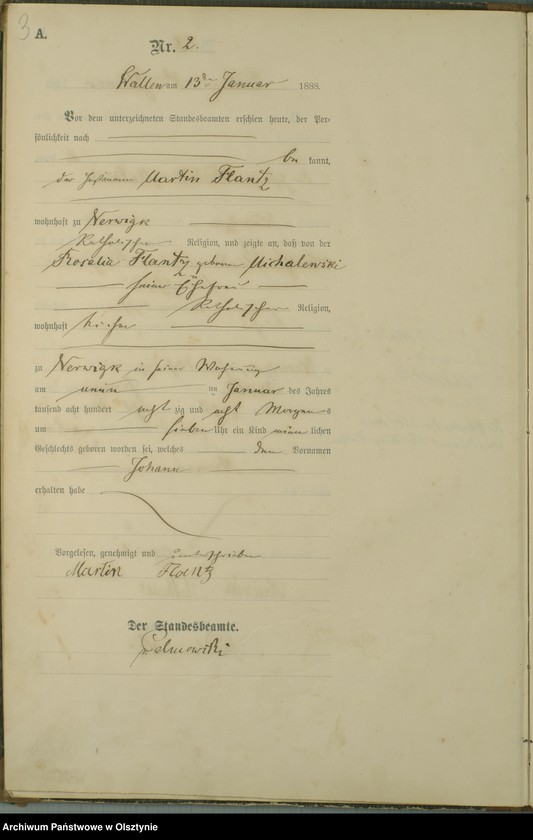 3
A.
Nr. 2.
Wallen am 13ten Januar 1888.
Vor dem unterzeichneten Standesbeamten erschien heute, der Per-
sönlichkeit nach
be kannt,
der Martin Flantz
wohnhaft zu Nerwigk
katholischer Religion, und zeigte an, daß von der
Rosalia Flantz geborene Michalewski
seiner Ehefrau
katholischer Religion,
wohnhaft bei ihm
zu Nerwigk in seiner Wohnung
am neun ten Januar des Jahres
tausend acht hundert acht zig und acht Morgens
um sieben Uhr ein Kind männlichen
Geschlechts geboren worden sei, welches den Vornamen
Johann
erhalten habe
Vorgelesen, genehmigt und unterschrieben
Martin Flantz
Der Standesbeamte.
Archiwum Państwowe w Olsztynie